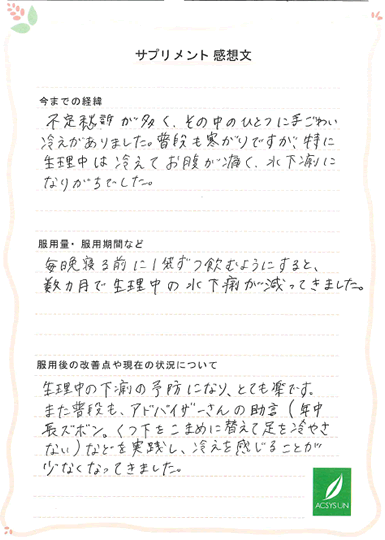 サプリメント 感想文
今までの経緯
不定愁訴が多く、その中のひとつに手ごわい
冷えがありました。普段も寒がりですが、特に
生理中は冷えてお腹が痛く、水下痢に
なりがちでした。
服用量・服用期間など
毎晩寝る前に1袋ずつ飲むようにすると、
数カ月で生理中の水下痢が減ってきました。
服用後の改善点や現在の状況について
生理中の下痢の予防になり、とても楽です。
また普段も、アドバイザーさんの助言(年中
長ズボン。くつ下をこまめに替えて足を冷やさ
ない)などを実践し、冷えを感じることが
少なくなってきました。
ACSYSUN